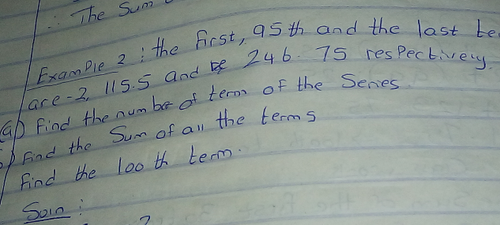 ∴ The Sum
Example 2: the first, 95th and the last te
are -2, 115.5 and 246.75 respectively.
(a) Find the number of term of the Series.
) Find the Sum of all the terms
Find the 100th term.
Soln:
?